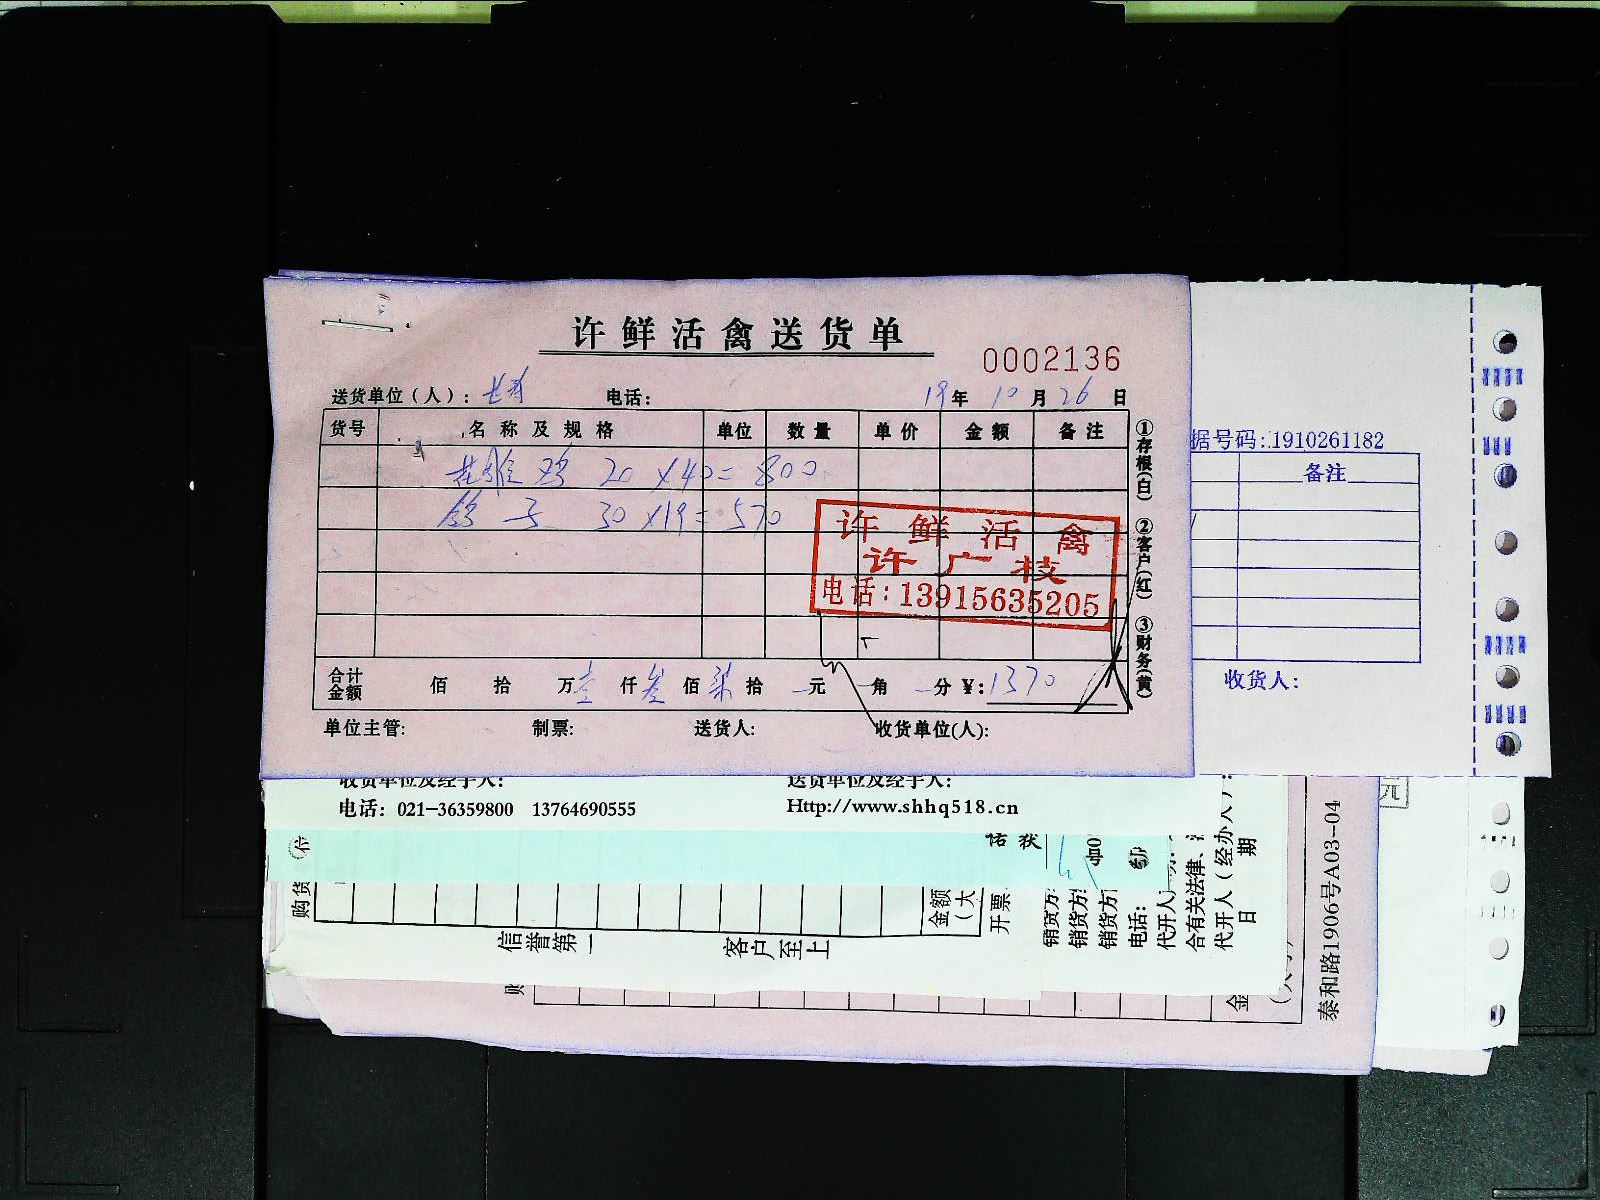 许鲜活禽送货单
0002136
送货单位（人）： 电话： 19年 10月 26日
货号 名称及规格 单位 数量 单价 金额 备注
草雄鸡 20 ×40= 800
鸽子 30 ×19= 570
许鲜活禽
许广枝
电话：13915635205
①存根(白) ②客户(红) ③财务(黄)
合计金额 佰 拾 万壹仟叁佰柒拾 元 角 分 ¥：1370
单位主管： 制票： 送货人： 收货单位(人)：
据号码：1910261182
备注
收货人：
收货单位及经手人： 送货单位及经手人：
电话：021-36359800 13764690555 Http://www.shhq518.cn
购货
信誉第一 客户至上
金额
（大
开票
销货方
销货方
电话：
代开人
合有关法律、
代开人（经办人）：
日 期
泰和路1906号A03-04
元